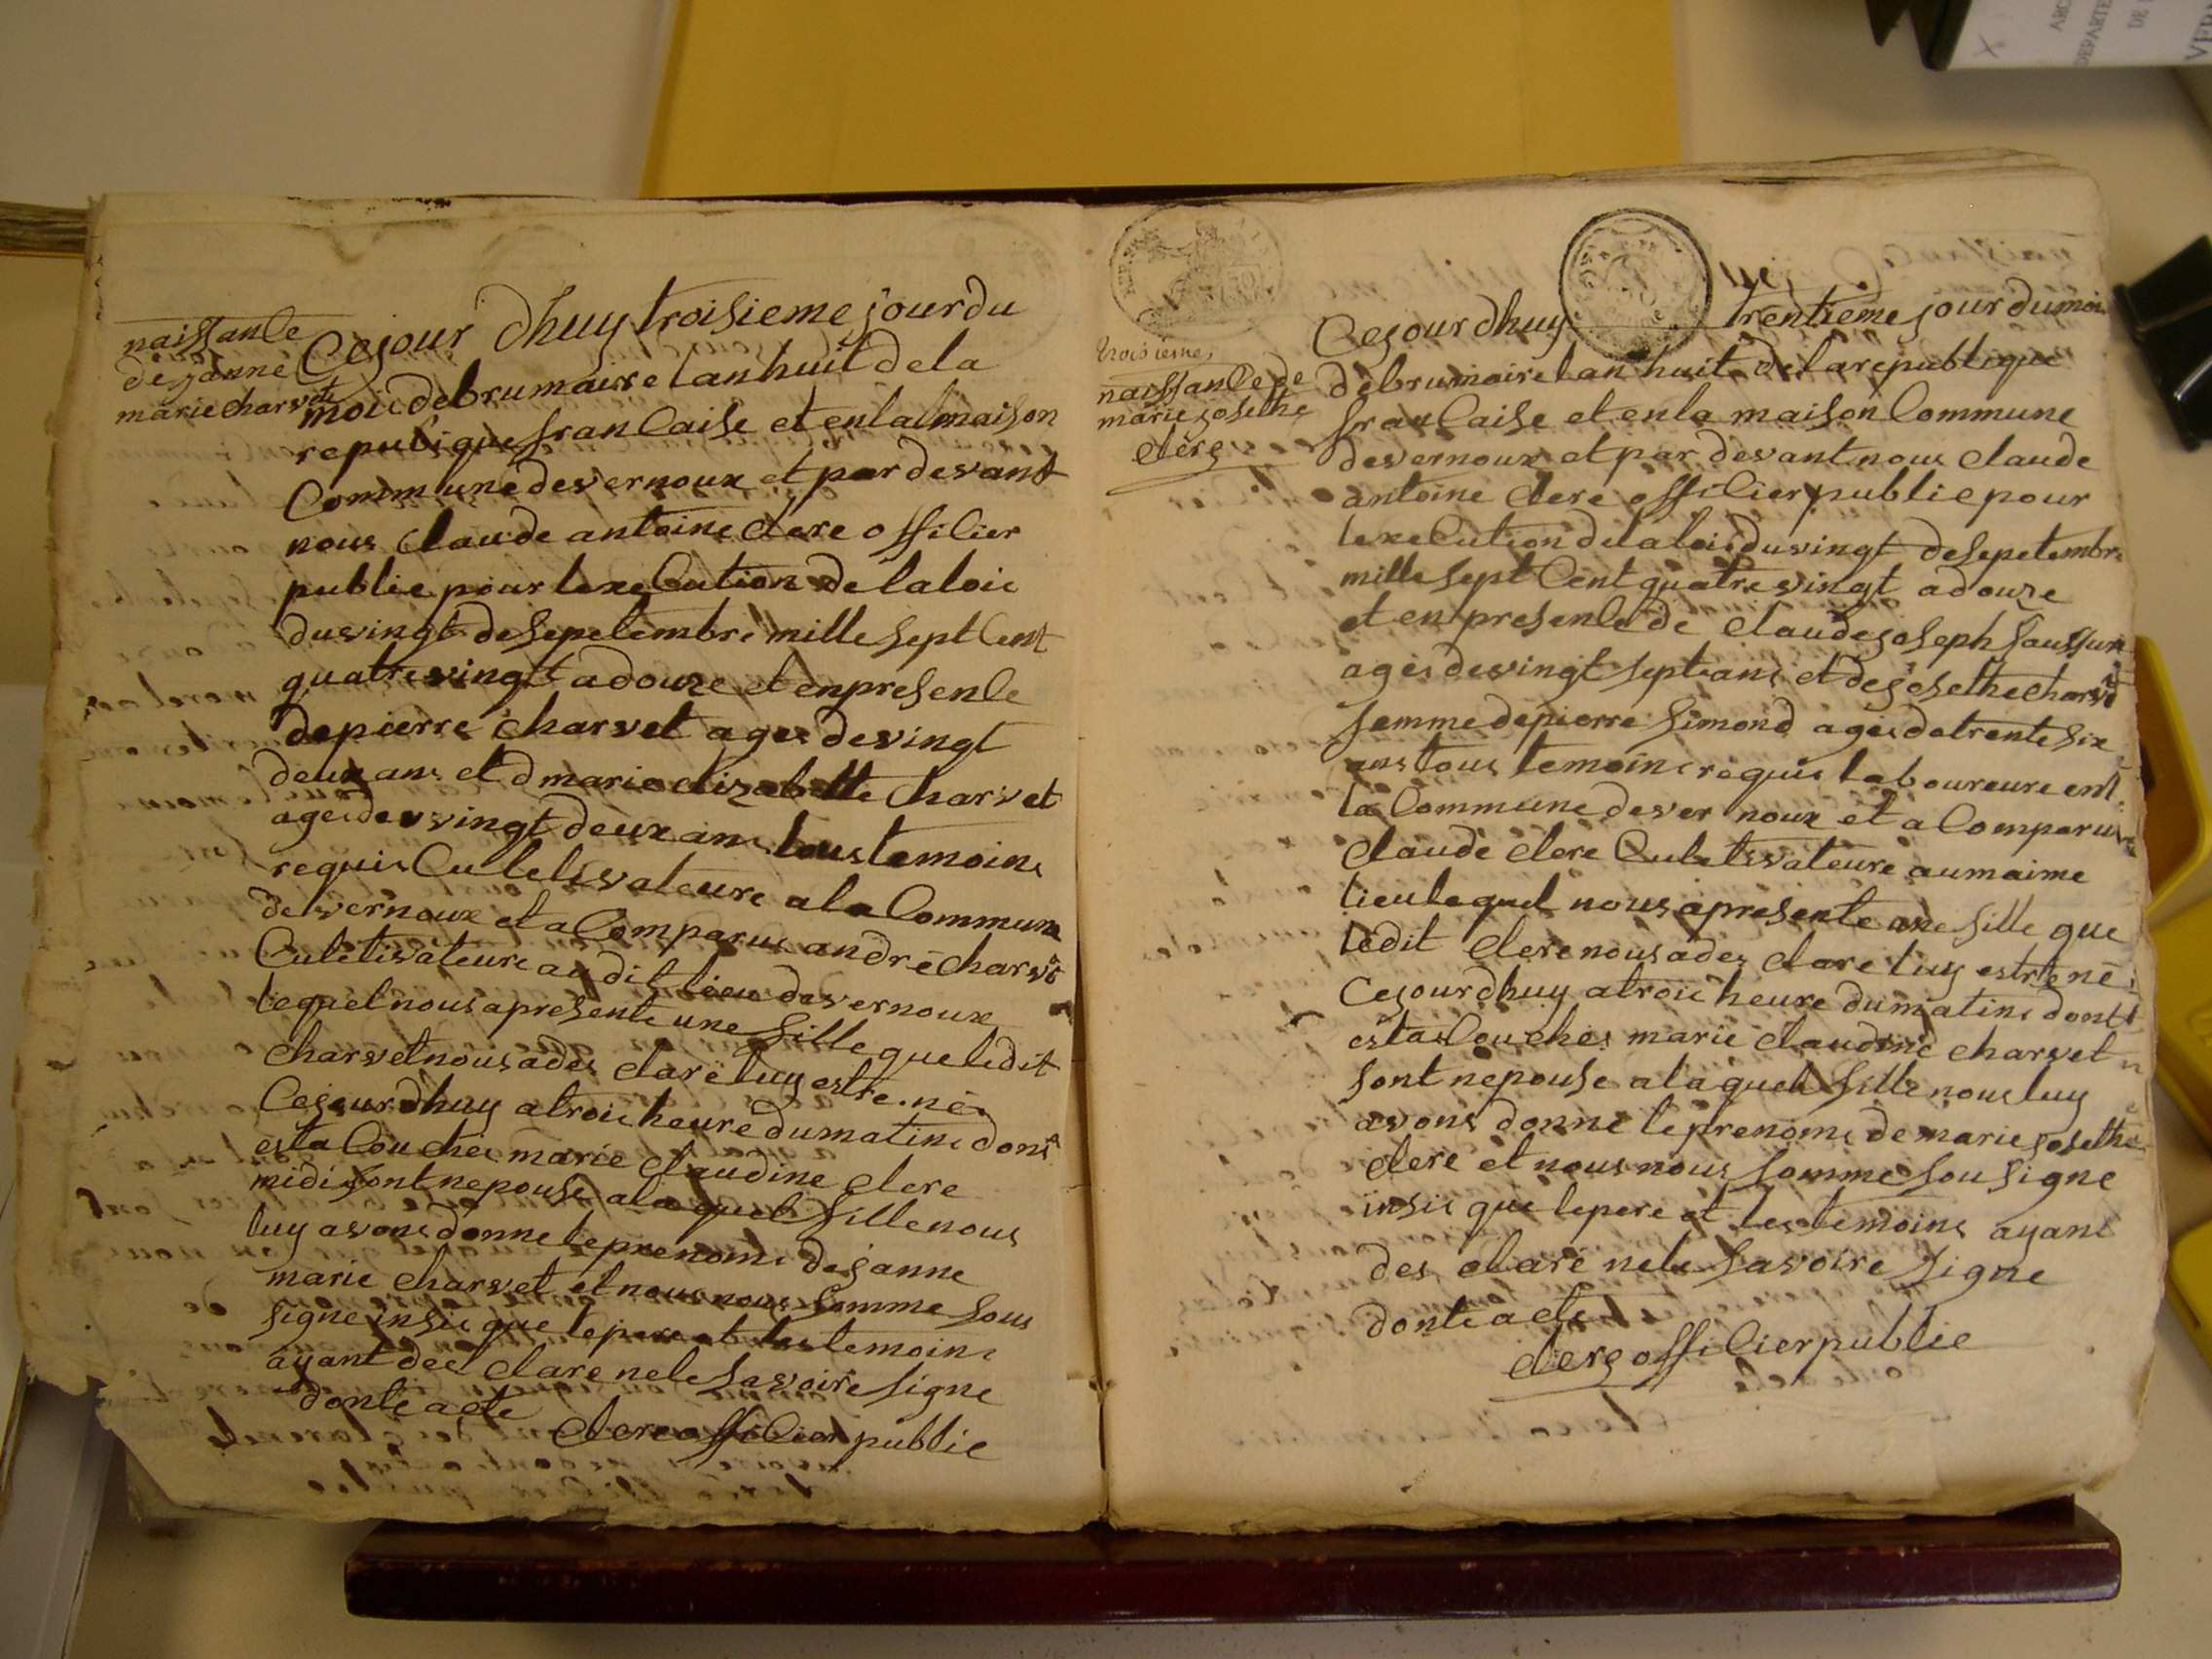 naissance
de janne
marie charvet
Cejour dhuy troisieme jour du
moic de brumaire lan huit de la
republique francaise et en la maison
Commune de vernoux et par devant
nous claude antoine clere officier
public pour lexecution de la loic
du vingt de sepetembre mille sept Cent
quatre vingt a douze et en presence
de pierre charvet ages de vingt
deux ans et d marie elizabette charvet
ages de vingt deux ans tous temoins
requis Culetivateure a la Commune
de vernoux et a Comparus andré charvet
Culetivateure au dit lieu de vernoux
lequel nous a presente une fille que ledit
charvet nous a des claré luy estre né
Cejourdhuy a troic heure du matin dont
est a Couches marie claudine clere
midi sont nepouse a la quele fille nous
luy avons donne le prenoms de janne
marie charvet et nous nous somme sous
signe insic que le pere et les temoins
ayant dec clare nele savoire signe
donte acte
clere officier public
troisieme
naissance de
marie josethe
clerc
Cejour dhuy trentieme jour du mois
de brumaire lan huit de la republique
francaise et en la maison Commune
de vernoux et par devant nous claude
antoine clere officier public pour
lexecution de la loic du vingt de sepetembre
mille sept Cent quatre vingt a douze
et en presence de claude joseph
ages de vingt sept ans et de josethe charvet
femme de pierre simond ages de trente six
ans tous temoins requis laboureure en
la Commune de vernoux et a Comparus
claude clere Culetivateure au maime
lieu lequel nous a presente une fille que
ledit clere nous a des clare luy estre né
Cejourdhuy a troic heure du matin dont
est a Couches marie claudine charvet
sont nepouse a la quele fille nous luy
avons donné le prenoms de marie josethe
clere et nous nous somme sousigne
insic que le pere et les temoins ayant
des claré nele savoire signe
donte acte
clerc officier public
ARC
DEPARTE
DE
VER